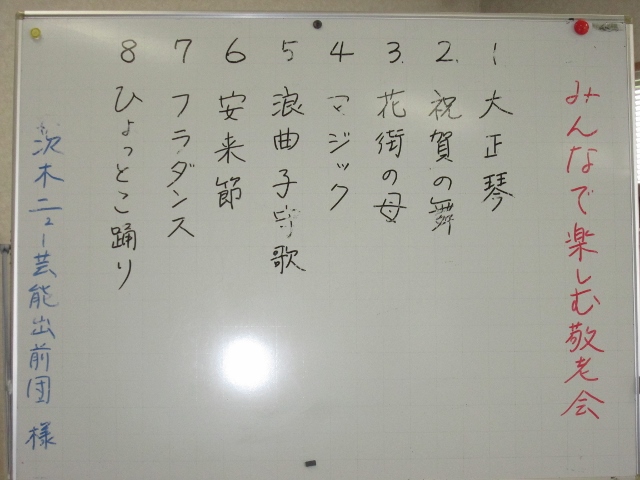 みんなで楽しむ敬老会
1 大正琴
2. 祝賀の舞
3. 花街の母
4 マジック
5 浪曲子守歌
6 安来節
7 フラダンス
8 ひょっとこ踊り
茨木ニュー芸能出前団 様